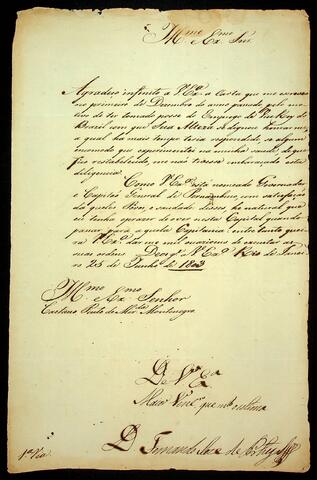 Illmo. e Exmo. Snr.
Agradeço infinito a V Exa. a Carta que me escreveo
no primeiro de Dezembro do anno passado pelo mo-
tivo de ter tomado posse do Emprego de Vice Rey do
Brazil com que Sua Alteza Se dignou honrar me,
a qual ha mais tempo teria respondido, se algum
incomodo que experimentei na minha saude, de que
fico restabelecido, me não tivesse embaraçado esta
diligencia.
Como V Exa. está nomeado Governador
e Capitão General de Pernambuco com satisfação
daquelles Povos, e ainda disso he natural que
eu tenha o prazer de o ver nesta Capital quando
passar para aquela Capitania: entre tanto quei-
ra V Exa. dar me mil occazioens de executar as
suas ordens. Deos gde. a V Exa. Rio de Janei-
ro 25 de Junho de 1803
Illmo. e Exmo. Senhor
Caetano Pinto de Mirda. Montenegro
De V Exa.
Maior Venor. que mto. o estima
D. Fernando José de Portugal
1a. Via